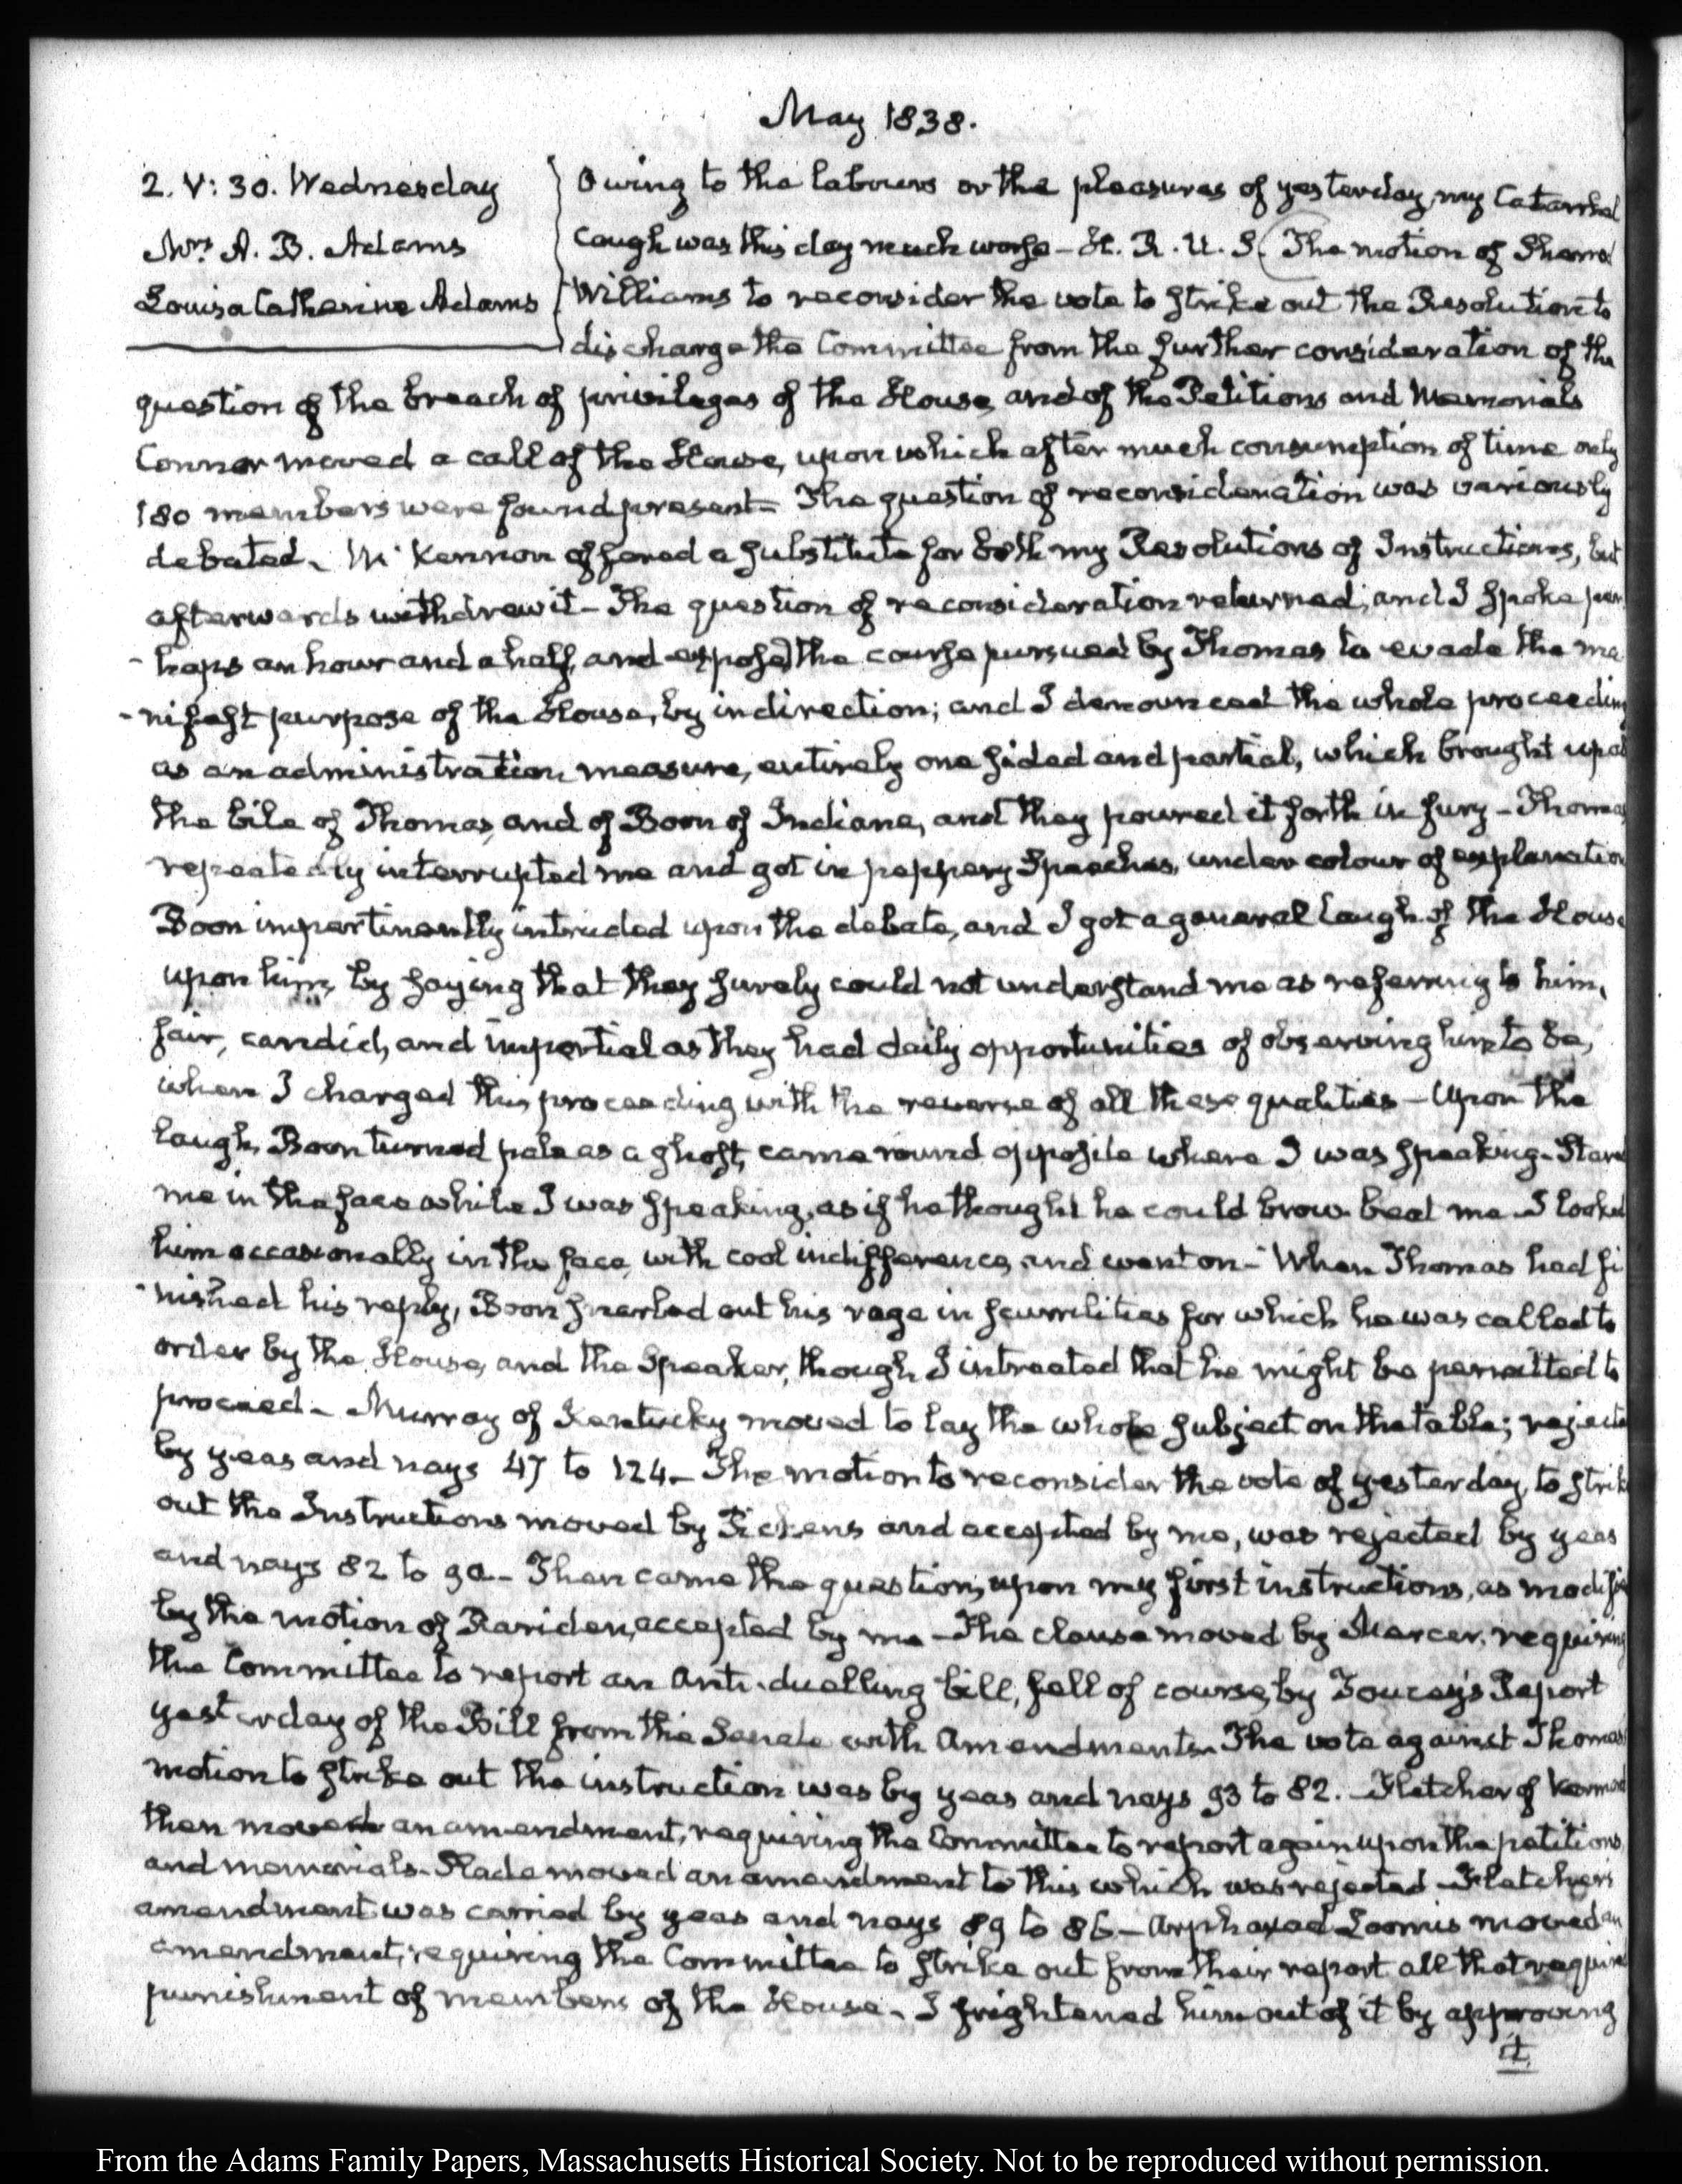 May 1838.
2. V: 30. Wednesday
Mrs A. B. Adams
Louisa Catherine Adams
Owing to the labours or the pleasures of yesterday, my Catarrhal
Cough was this day much worse – H. R. U. S. (The motion of Sherrod
Williams to reconsider the vote to strike out the Resolution to
discharge the Committee from the further consideration of the
question of the breach of privileges of the House, and of the Petitions and Memorials
Connor moved a call of the House, upon which after much consumption of time only
180 members were found present – The question of reconsideration was variously
debated. McKennon offered a substitute for both my Resolutions of Instructions, but
afterwards withdrew it – The question of reconsideration returned; and I spoke per
-haps an hour and a half, and exposed the course pursued by Thomas to evade the ma
-nifest purpose of the House, by indirection; and I denounced the whole proceeding
as an administration measure, entirely one sided and partial, which brought up all
the bile of Thomas, and of Boon of Indiana, and they poured it forth in fury – Thomas
repeatedly interrupted me and got in peppery Speeches, under colour of explanation
Boon impertinently intruded upon the debate, and I got a general laugh of the House
upon him, by saying that they surely could not understand me as referring to him,
fair, candid, and impartial as they had daily opportunities of observing him to be,
when I charged this proceeding with the reverse of all these qualities – Upon the
laugh, Boon turned pale as a ghost, came round opposite where I was speaking – Stared
me in the face while I was speaking, as if he thought he could brow beat me – I looked
him occasionally in the face, with cool indifference, and went on – When Thomas had fi
-nished his reply, Boon snarled out his rage in scurrilities for which he was called to
order by the House, and the Speaker, though I intreated that he might be permitted to
proceed – Murray of Kentucky moved to lay the whole subject on the table; rejected
by yeas and nays 47 to 124 – The motion to reconsider the vote of yesterday, to strike
out the Instructions moved by Pickens and accepted by me, was rejected by yeas
and nays 82 to 90 – Then came the question, upon my first instructions, as modified
by the motion of Rariden, accepted by me – The clause moved by Mercer, requiring
the Committee to report an Anti-duelling bill, fell of course, by Toucey's Report
yesterday of the Bill from the Senate with Amendments. The vote against Thomas's
motion to strike out the instruction was by yeas and nays 93 to 82. – Fletcher of Vermont
then moved an amendment, requiring the Committee to report again upon the petitions
and memorials – Slade moved an amendment to this which was rejected – Fletcher's
amendment was carried by yeas and nays 89 to 86 – Arphaxad Loomis moved an
amendment, requiring the Committee to strike out from their report all that required
punishment of members of the House. – I frightened him out of it by approving
it.
From the Adams Family Papers, Massachusetts Historical Society. Not to be reproduced without permission.